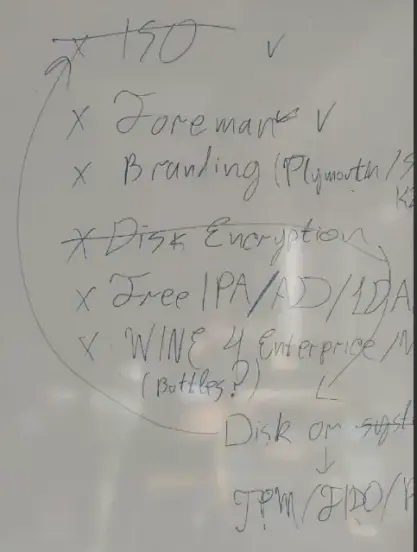 x ISO v
x Foreman v
x Branding (Plymouth / S
K
x Disk Encryption
x Free IPA/AD/LDA
x WINE 4 Enterprice / N
(Bottles?)
Disk or syst
↓
TPM/FIDO/P